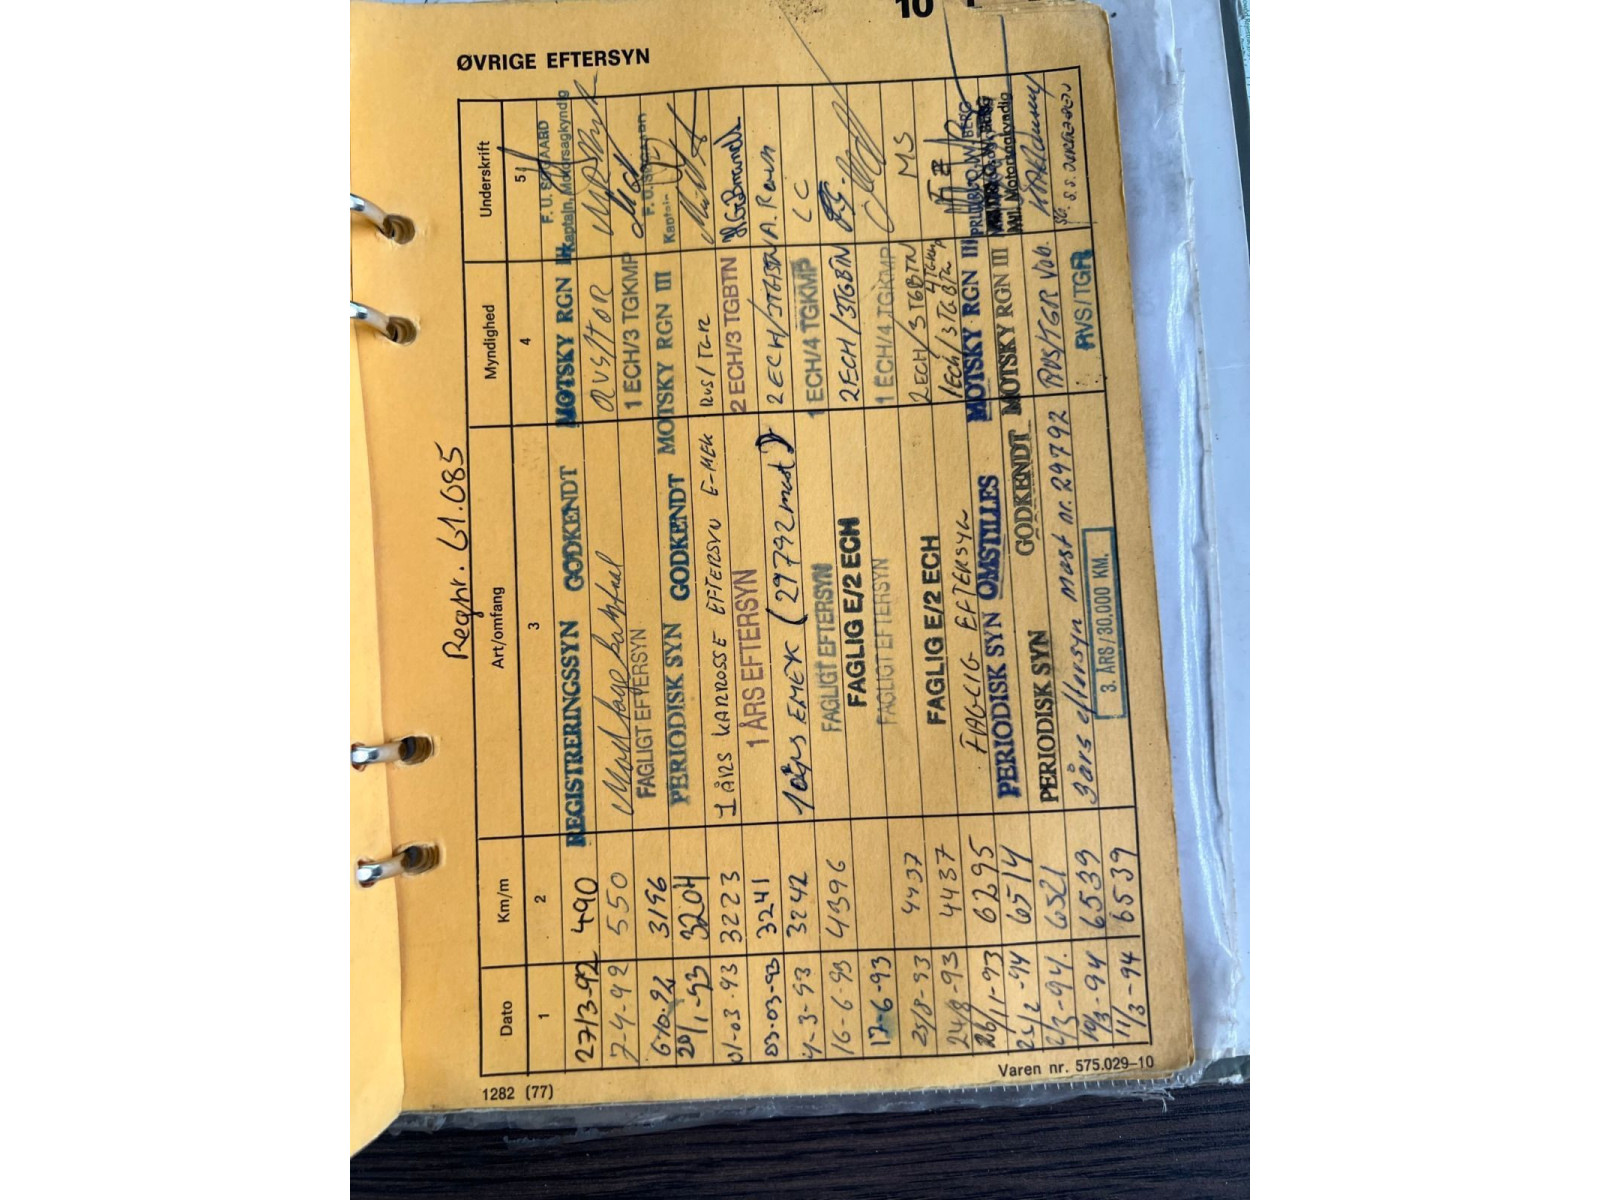 10
ØVRIGE EFTERSYN
Regnr. 61.085
Dato Km/m Art/omfang Myndighed Underskrift
1 2 3 4 5
27/3-92 490 REGISTRERINGSSYN GODKENDT MOTSKY RGN III F. U. Kaptajn, Motorsagkyndig
7-4-92 550 RVS/TGR
6-10-92 3196 FAGLIGT EFTERSYN 1 ECH/3 TGKMP
20/1-93 3204 PERIODISK SYN GODKENDT MOTSKY RGN III F. U. Kaptajn
01-03-93 3223 1 ÅRS KARROSSE EFTERSYN E-MEK RVS/TGR
03-03-93 3241 1 ÅRS EFTERSYN 2 ECH/3 TGBTN
4-3-93 3242 10års EMEK (29792 mast) 2 ECH/3TGBTN
16-6-93 4396 FAGLIGT EFTERSYN 1 ECH/4 TGKMP LC
FAGLIG E/2 ECH 2ECH/3TGBTN
17-6-93 FAGLIGT EFTERSYN 1 ECH/4 TGKMP
25/8-93 4437 FAGLIG E/2 ECH 2ECH/3TGBTN MS
24/8-93 4437 FAGLIG EFTERSYN 1Ech/
26/11-93 6295 PERIODISK SYN OMSTILLES MOTSKY RGN III
6514 GODKENDT MOTSKY RGN III Motorsagkyndig
2/3-94. 6521 PERIODISK SYN RVS/TGR Vbb.
10/3-94 6539 3års eftersyn mast nr. 29792
11/3-94 6539 3. ÅRS/30.000 KM. RVS/TGR
1282 (77)
Varen nr. 575.029–10